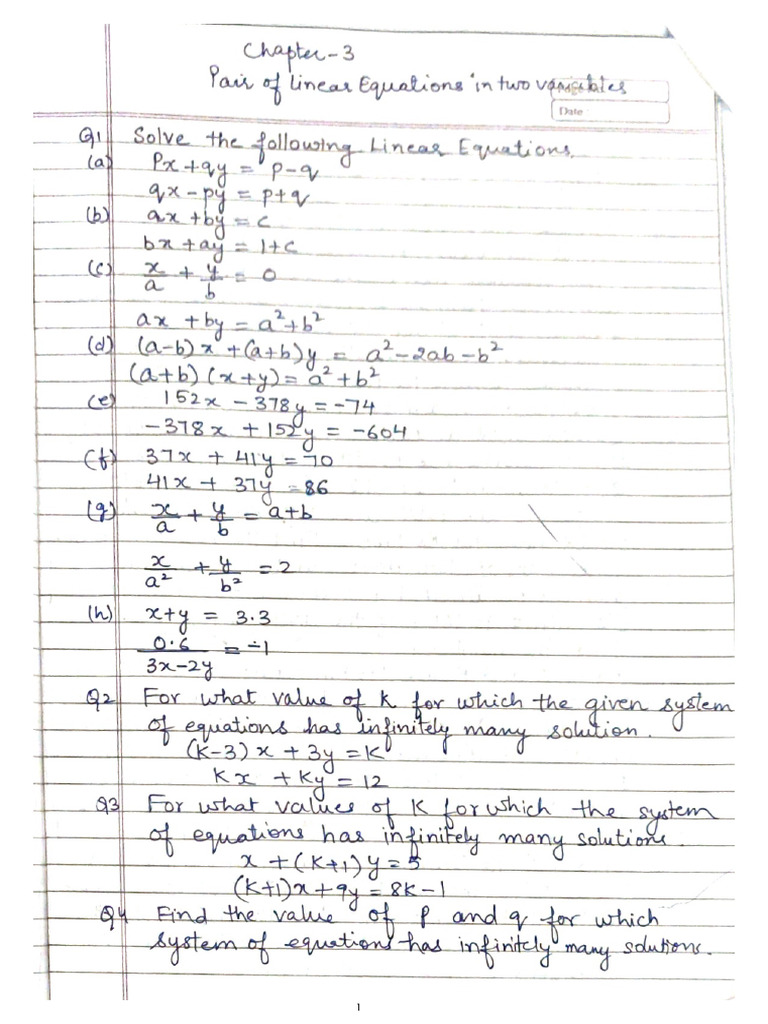 Chapter-3
Pair of Linear Equations in two variables
Date
Q1 Solve the following Linear Equations.
(a) Px + qy = p-q
qx - py = p+q
(b) ax + by = c
bx + ay = 1+c
(c) x/a + y/b = 0
ax + by = a²+b²
(d) (a-b)x + (a+b)y = a²-2ab-b²
(a+b)(x+y) = a²+b²
(e) 152x - 378y = -74
-378x + 152y = -604
(f) 37x + 41y = 70
41x + 37y = 86
(g) x/a + y/b = a+b
x/a² + y/b² = 2
(h) x+y = 3.3
0.6/(3x-2y) = -1
Q2 For what value of K for which the given system
of equations has infinitely many solution.
(K-3)x + 3y = K
Kx + Ky = 12
Q3 For what values of K for which the system
of equations has infinitely many solutions.
x + (K+1)y = 5
(K+1)x + 9y = 8K-1
Q4 Find the value of p and q for which
system of equations has infinitely many solutions.
1